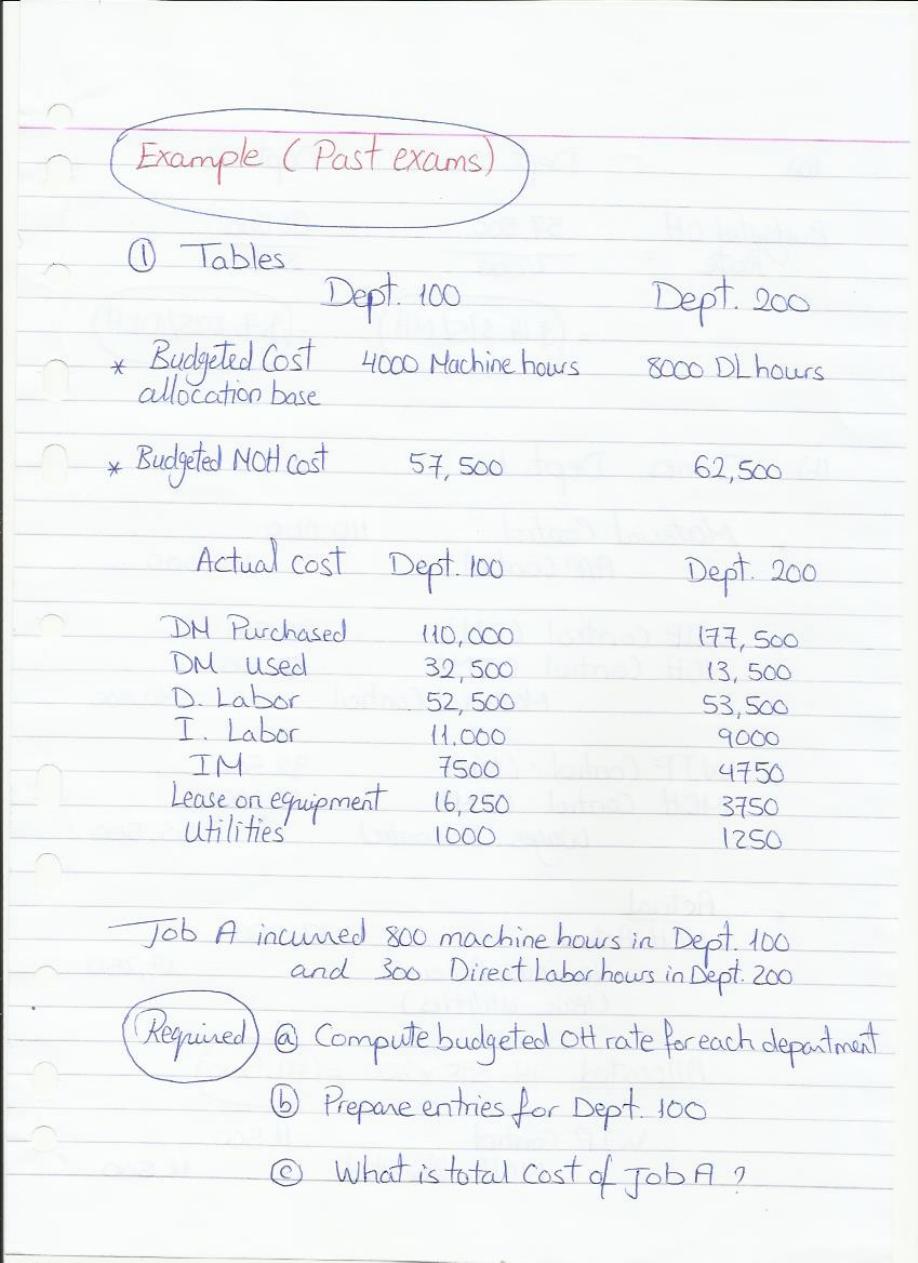 Example (Past exams)
① Tables
Dept. 100 Dept. 200
* Budgeted Cost 4000 Machine hours 8000 DL hours
allocation base
* Budgeted MOH cost 57,500 62,500
Actual cost Dept. 100 Dept. 200
DM Purchased 110,000 177,500
DM used 32,500 13,500
D. Labor 52,500 53,500
I. Labor 11.000 9000
IM 7500 4750
Lease on equipment 16,250 3750
Utilities 1000 1250
Job A incurred 800 machine hours in Dept. 100
and 300 Direct Labor hours in Dept. 200
Required ⓐ Compute budgeted OH rate for each department
ⓑ Prepare entries for Dept. 100
ⓒ What is total cost of Job A ?